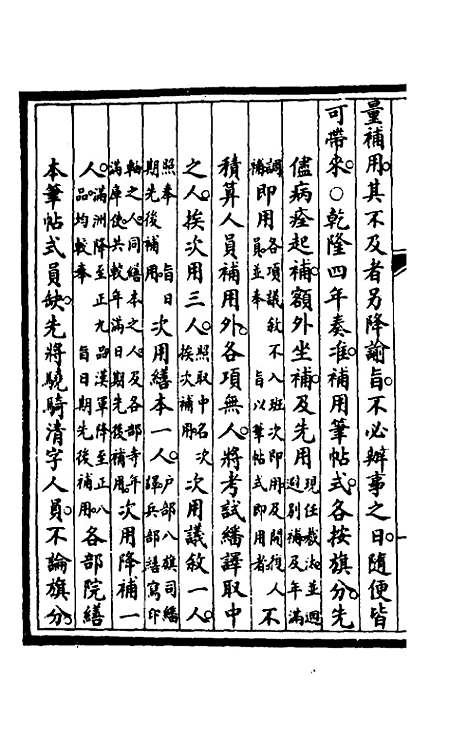 量補用其不及者另降諭旨不必辦事之日隨便皆
可帶來○乾隆四年奏准補用筆帖式各按旗分先
儘病痊起補額外坐補及先用現任裁汰並迴避別補及年滿
調補即用各項議敘不入班次即用及閒散人員並奉旨以筆帖式即用者不
積算人員補用外各項無人將考試繙譯取中
之人挨次用三人照取中名次挨次補用次用議敘一人
照奉旨日期先後補用次用繕本一人戶部八旗司繙譯兵部繕寫印
軸之人同繕本之人及各部寺年滿庫使共較年滿日期先後補用次用降補一
人滿洲降至正九品漢軍降至正八品均較奉旨日期先後補用各部院繕
本筆帖式員缺先將驍騎清字人員不論旗分